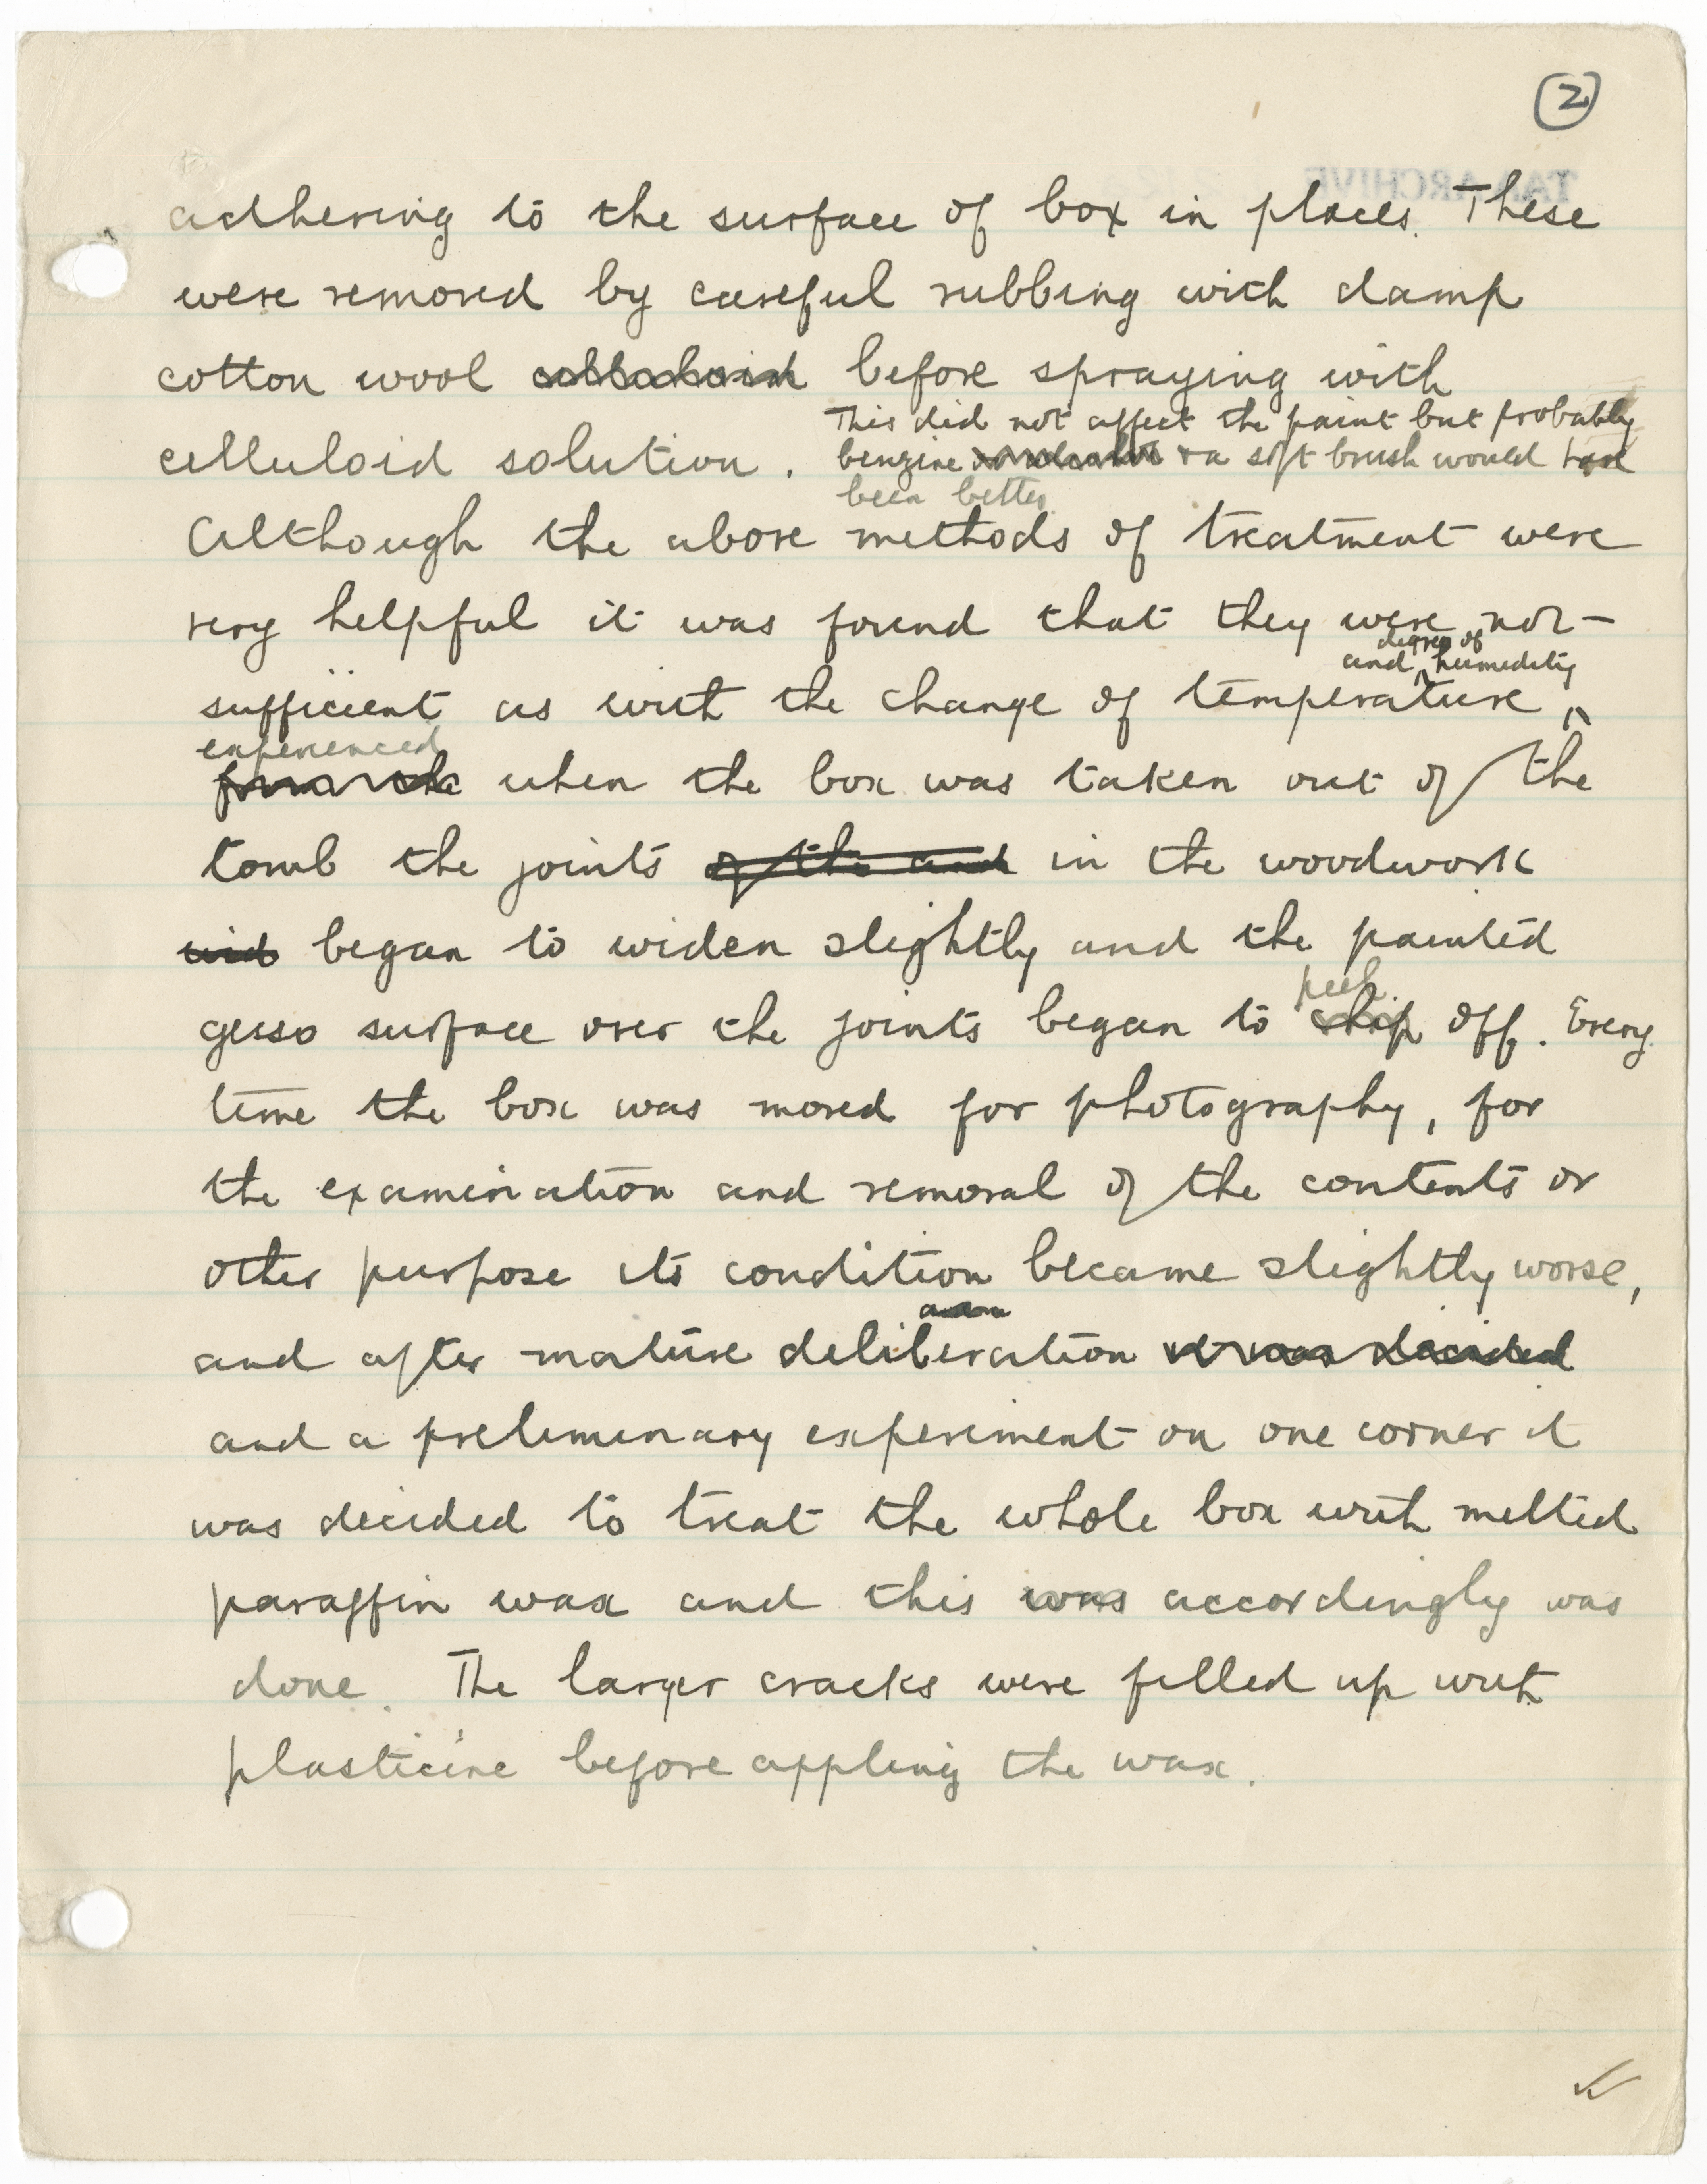 2
TAA ARCHIVE
adhering to the surface of box in places. These
were removed by careful rubbing with damp
cotton wool before spraying with
This did not affect the paint but probably
celluloid solution. benzine & a soft brush would have
been better
Although the above methods of treatment were
very helpful it was found that they were not
and degree of humidity
sufficient as with the change of temperature
experienced
when the box was taken out of the
tomb the joints of the and in the woodwork
began to widen slightly and the painted
peel
gesso surface over the joints began to chip off. Every
time the box was moved for photography, for
the examination and removal of the contents or
other purpose its condition became slightly worse,
and after mature deliberation it was decided
and a preliminary experiment on one corner it
was decided to treat the whole box with melted
paraffin wax and this was accordingly was
done. The larger cracks were filled up with
plasticine before appling the wax.